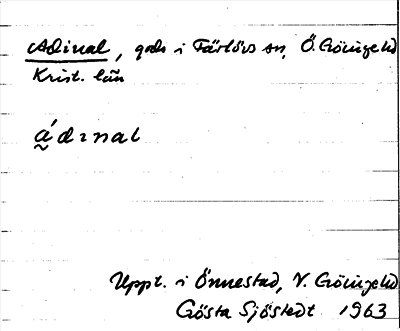 Adinal, gods i Färlövs sn, Ö. Göinge hd
Krist. län
ádınal
Uppt. i Önnestad, V. Göinge hd
Gösta Sjöstedt 1963